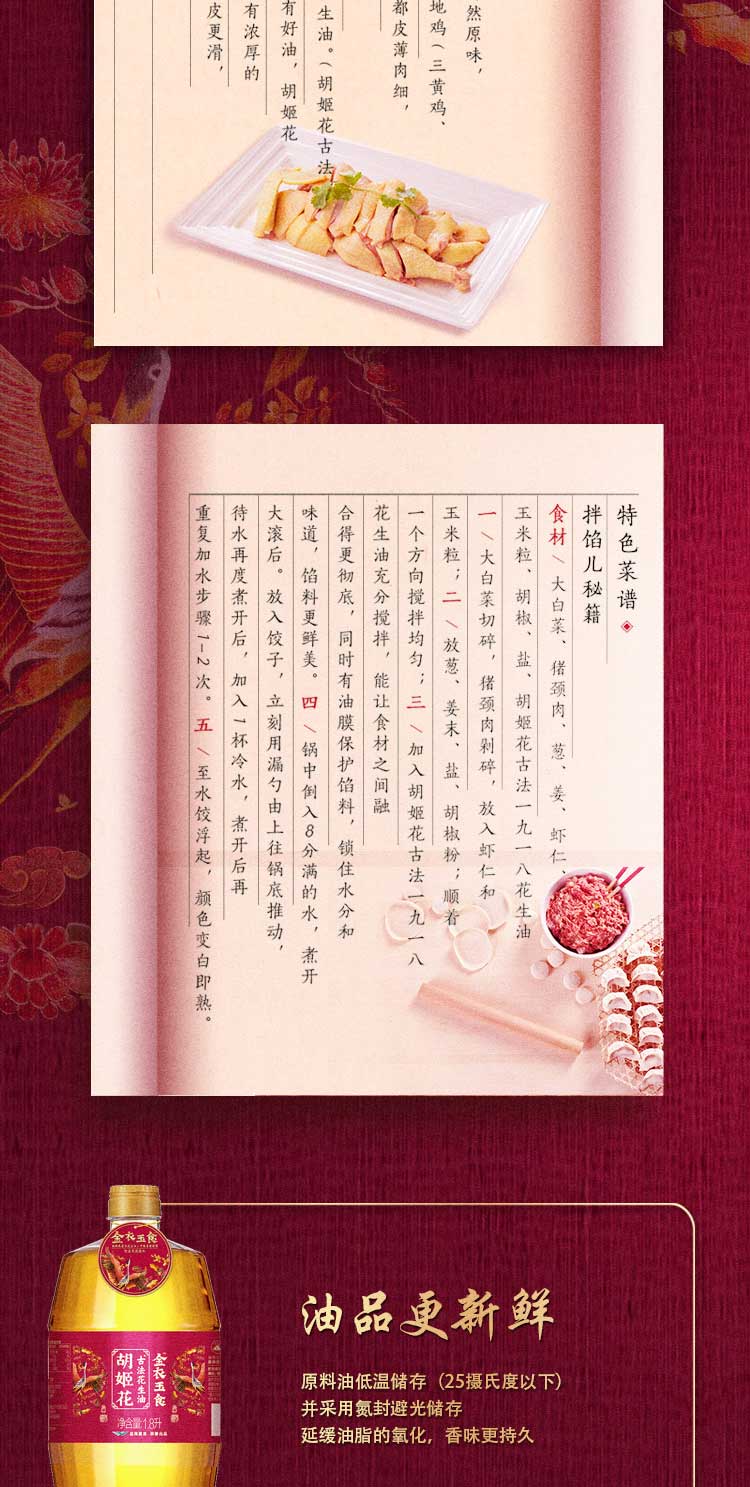 然原味，
地鸡（三黄鸡、
都皮薄肉细，
生油。（胡姬花古法
有好油，胡姬花
有浓厚的
皮更滑，
特色菜谱
拌馅儿秘籍
食材／大白菜、猪颈肉、葱、姜、虾仁、
玉米粒、胡椒、盐、胡姬花古法一九一八花生油
一／大白菜切碎，猪颈肉剁碎，放入虾仁和
玉米粒；二／放葱、姜末、盐、胡椒粉；顺着
一个方向搅拌均匀；三／加入胡姬花古法一九一八
花生油充分搅拌，能让食材之间融
合得更彻底，同时有油膜保护馅料，锁住水分和
味道，馅料更鲜美。四／锅中倒入8分满的水，煮开
大滚后。放入饺子，立刻用漏勺由上往锅底推动，
待水再度煮开后，加入1杯冷水，煮开后再
重复加水步骤1-2次。五／至水饺浮起，颜色变白即熟。
金衣玉食
金衣玉食
古法花生油
胡姬花
净含量:1.8升
油品更新鲜
原料油低温储存（25摄氏度以下）
并采用氮封避光储存
延缓油脂的氧化，香味更持久